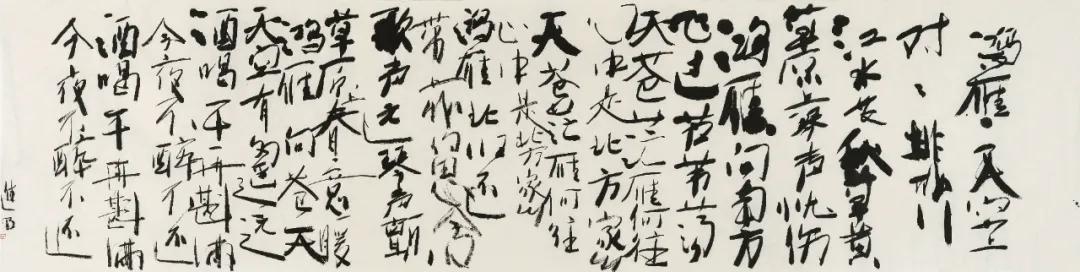 鸿雁天空
对々排行
江水长秋草黄
草原琴声忧伤
鸿雁向南方
飞过芦苇荡
天苍茫雁何往
心中是北方家乡
天苍茫雁何往
心中是北方家乡
鸿雁北归还
带我的思念
歌声远琴声颤
草原上春意暖
鸿雁向苍天
天空有多遥远
酒喝干再斟满
今夜不醉不还
酒喝干再斟满
今夜不醉不还